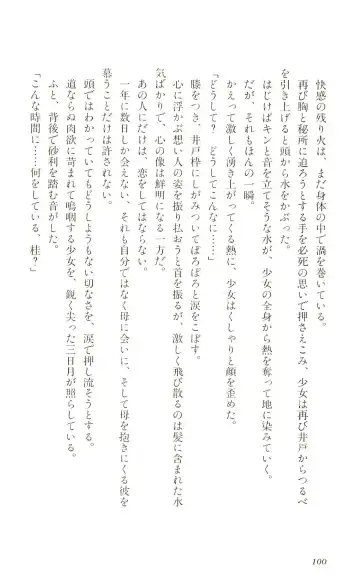 快感の残り火は、まだ身体の中で渦を巻いている。
再び胸と秘所に迫ろうとする手を必死の思いで押さえこみ、少女は再び井戸からつるべ
を引き上げると頭から水をかぶった。
はじけばキンと音を立てそうな水が、少女の全身から熱を奪って地に染みていく。
だが、それもほんの一瞬。
かえって激しく湧き上がってくる熱に、少女はくしゃりと顔を歪めた。
「どうして？　どうしてこんなに……」
膝をつき、井戸枠にしがみついてぽろぽろと涙をこぼす。
心に浮かぶ想い人の姿を振り払おうと首を振るが、激しく飛び散るのは髪に含まれた水
気ばかりで、心の像は鮮明になる一方だ。
あの人にだけは、恋をしてはならない。
一年に数日しか会えない、それも自分ではなく母に会いに、そして母を抱きにくる彼を
慕うことだけは許されない。
頭ではわかっていてもどうしようもない切なさを、涙で押し流そうとする。
道ならぬ肉欲に苛まれて嗚咽する少女を、鋭く尖った三日月が照らしている。
ふと、背後で砂利を踏む音がした。
「こんな時間に……何をしている、桂？」
100